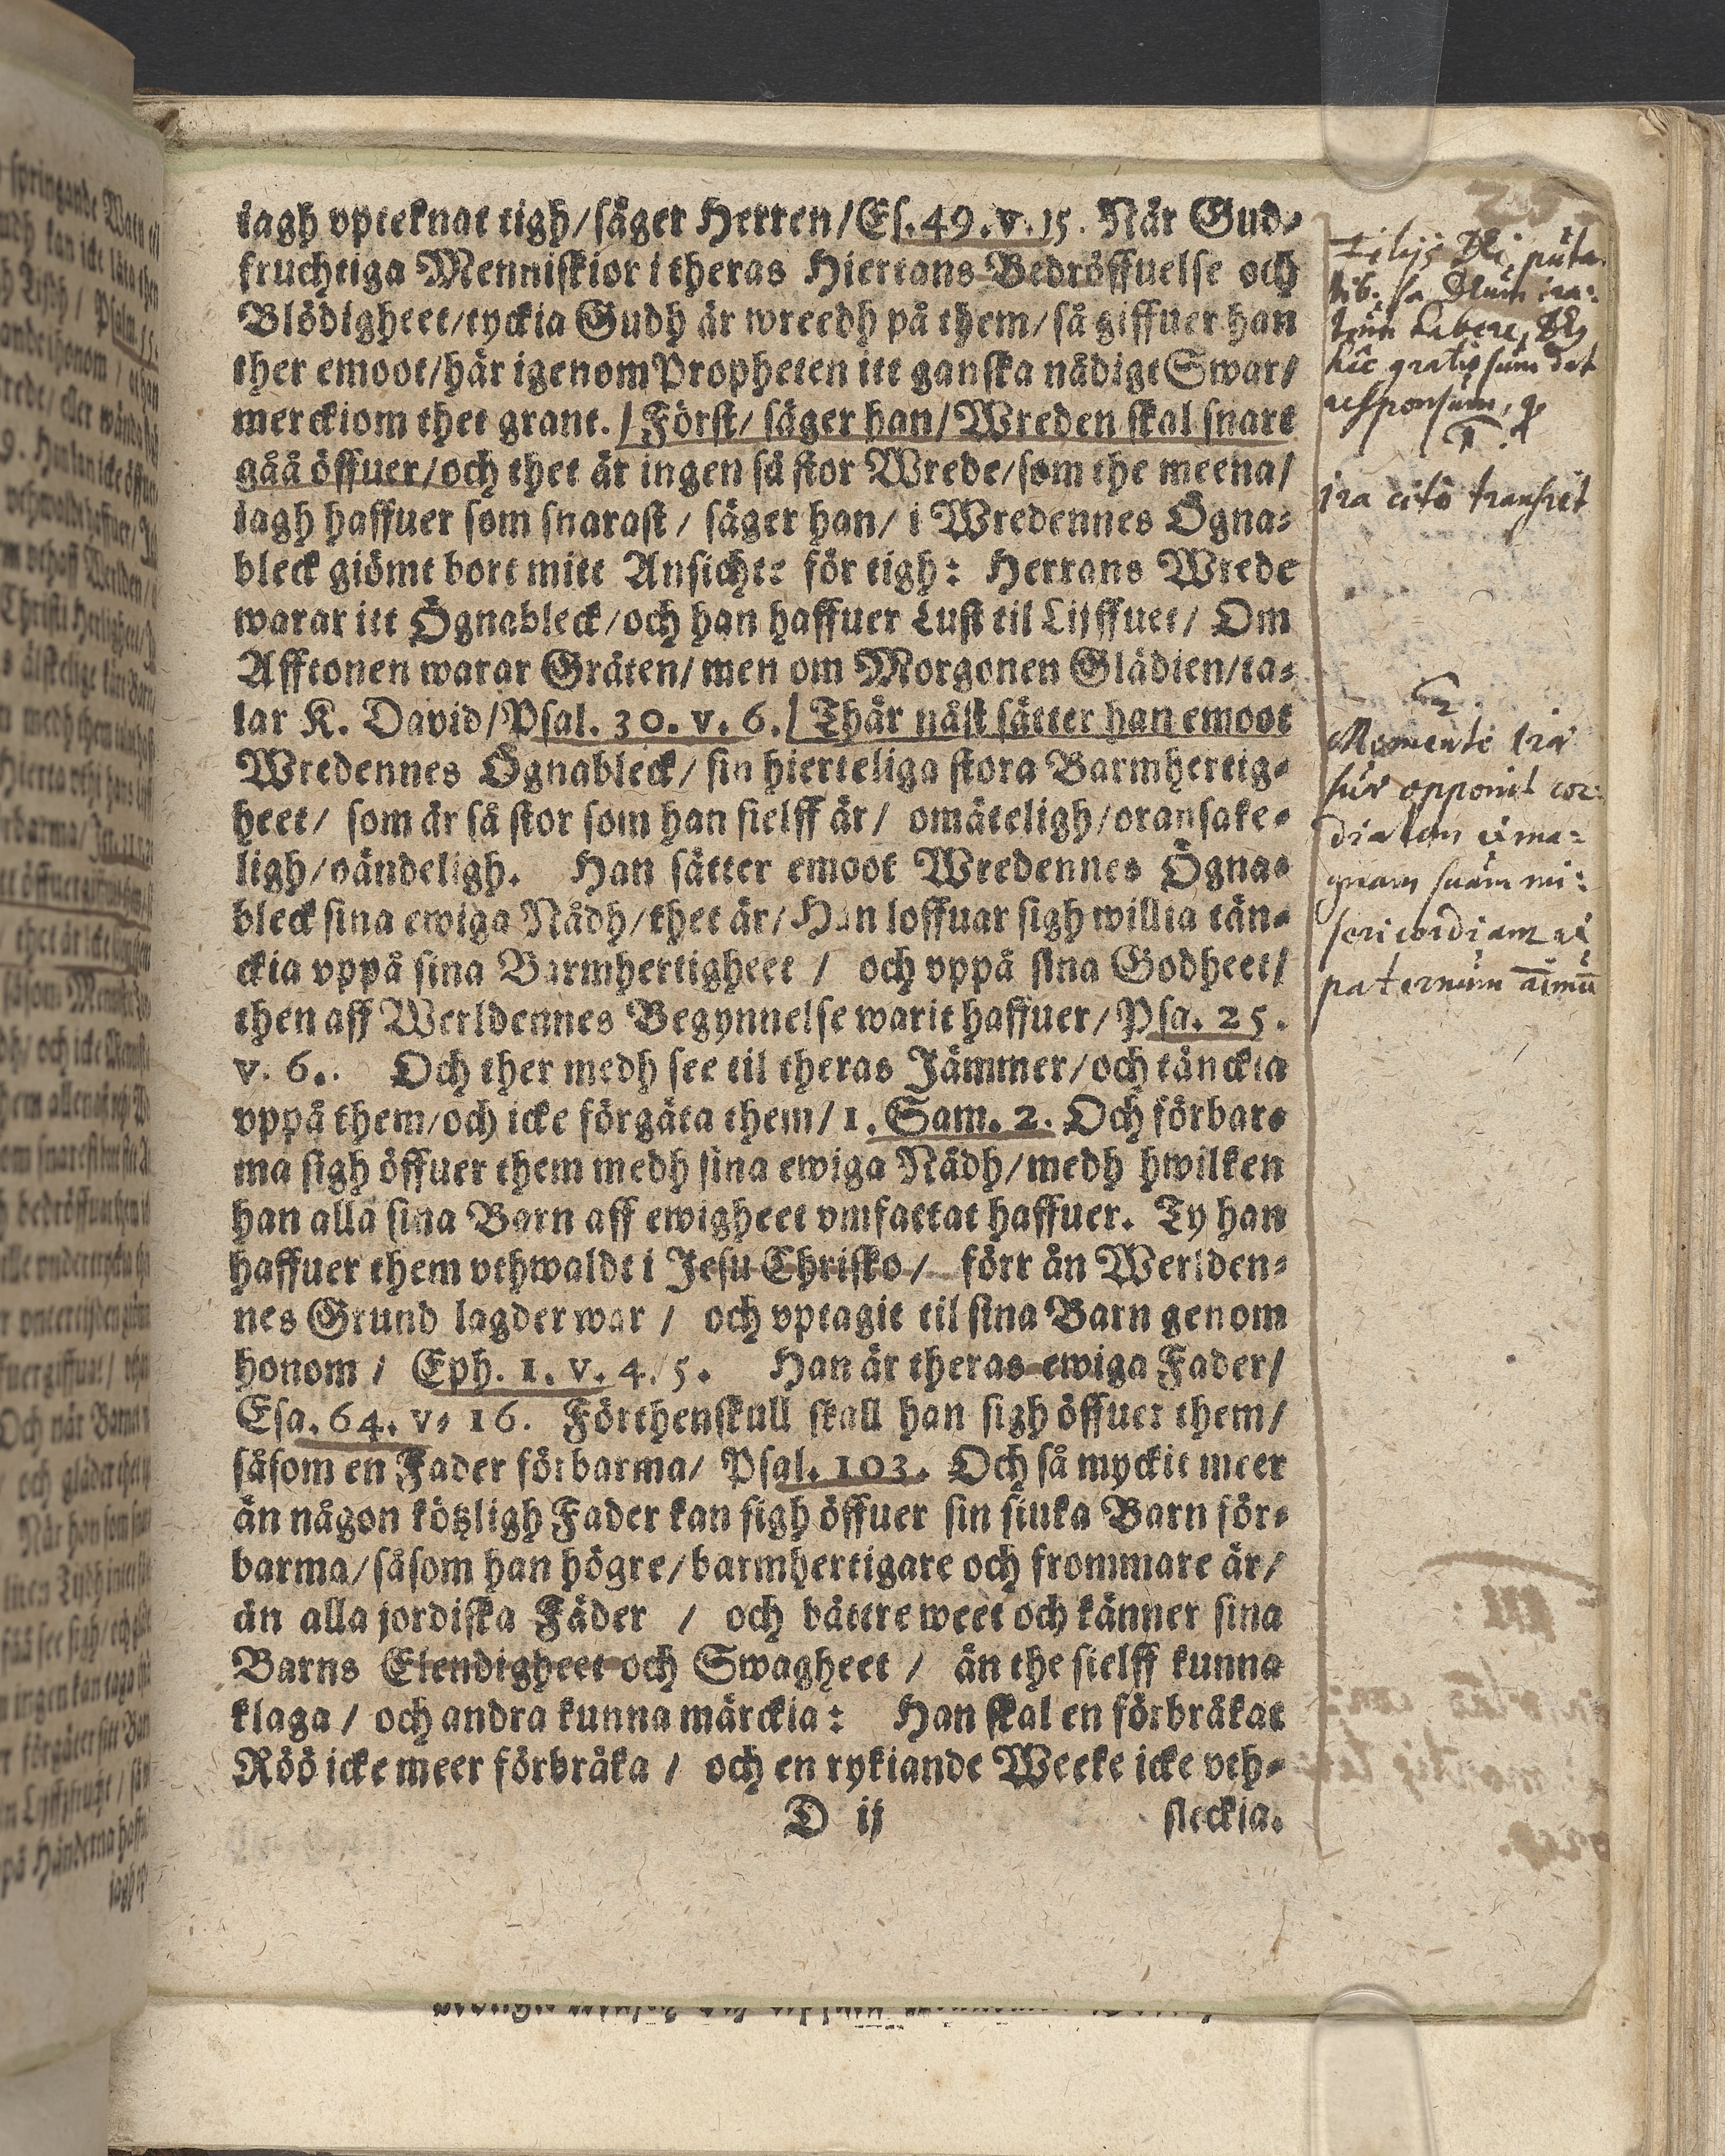 iagh vpteknat tigh/ säger Herren/ Es. 49. v. 15. När Gud-
fruchtiga Menniskior i theras Hiertans Bedröffuelse och
Blödigheet/ tyckia Gudh är wreedh på them/ så giffuer han
ther emoot/ här igenom Propheten itt ganska nådigt Swar/
merckiom thet grant. / Först/ säger han/ Wreden skal snart
gåå öffuer/ och thet är ingen så stor Wrede/ som the meena/
iagh haffuer som snarast / säger han/ i Wredennes Ögna-
bleck giömt bort mitt Ansichte för tigh: Herrans Wrede
warar itt Ögnableck/ och han haffuer Lust til Lijffuet/ Om
Afftonen warar Gråten/ men om Morgonen Glädien/ ta-
lar K. David/ Psal. 30. v. 6. / Thär näst sätter han emoot
Wredennes Ögnableck/ sin hierteliga stora Barmhertig-
heet/ som är så stor som han sielff är/ omäteligh/ oransake-
ligh/ oändeligh. Han sätter emoot Wredennes Ögna-
bleck sina ewiga Nådh/ thet är/ Han loffuar sigh willia tän-
ckia vppå sina Barmhertigheet / och vppå sina Godheet/
then aff Werldennes Begynnelse warit haffuer/ Psa. 25.
v. 6.. Och ther medh see til theras Jämmer/ och tänckia
vppå them/ och icke förgäta them/ 1. Sam. 2. Och förbar-
ma sigh öffuer them medh sina ewiga Nådh/ medh hwilken
han alla sina Barn aff ewigheet vmfattat haffuer. Ty han
haffuer them vthwaldt i Jesu Christo / förr än Werlden-
nes Grund lagder war / och vptagit til sina Barn genom
honom / Eph. 1. v. 4. 5. Han är theras ewiga Fader/
Esa. 64. v. 16. Förthenskull skall han sigh öffuer them/
såsom en Fader förbarma/ Psal. 103. Och så myckit meer
än någon kötzligh Fader kan sigh öffuer sin siuka Barn för-
barma/ såsom han högre/ barmhertigare och frommare är/
än alla jordiska Fäder / och bättre weet och känner sina
Barns Elendigheet och Swagheet / än the sielff kunna
klaga / och andra kunna märckia: Han skal en förbråkat
Röö icke meer förbråka / och en rykiande Weeke icke vth-
D ij sleckia.
filijs Dei puta
habere,
hic gratiosum dat
responsum, q
1.
jra cito transiet
2.
Momento irae
suae opponit cor-
dialem et ma-
gnam suam mi-
sericordiam et
paternum